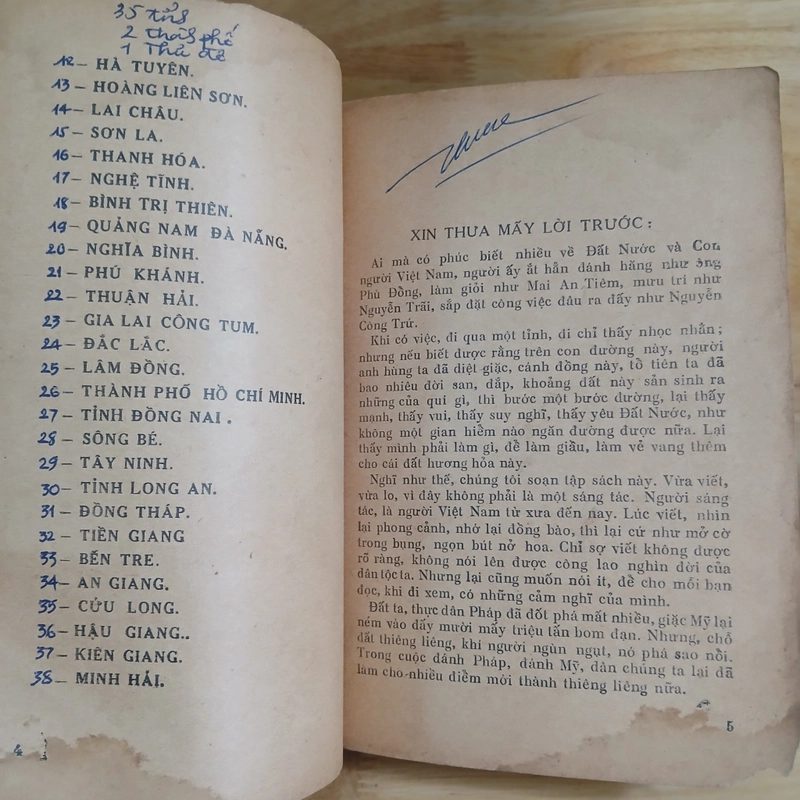 35 tỉnh
2 thành phố
1 Thủ đô
12- HÀ TUYÊN.
13- HOÀNG LIÊN SƠN.
14- LAI CHÂU.
15- SƠN LA.
16- THANH HÓA.
17- NGHỆ TĨNH.
18- BÌNH TRỊ THIÊN.
19- QUẢNG NAM ĐÀ NẴNG.
20- NGHĨA BÌNH.
21- PHÚ KHÁNH.
22- THUẬN HẢI.
23- GIA LAI CÔNG TUM.
24- ĐẮC LẮC.
25- LÂM ĐỒNG.
26- THÀNH PHỐ HỒ CHÍ MINH.
27- TỈNH ĐỒNG NAI.
28- SÔNG BÉ.
29- TÂY NINH.
30- TỈNH LONG AN.
31- ĐỒNG THÁP.
32- TIỀN GIANG
33- BẾN TRE.
34- AN GIANG.
35- CỬU LONG.
36- HẬU GIANG..
37- KIÊN GIANG.
38- MINH HẢI.
4
XIN THƯA MẤY LỜI TRƯỚC:
Ai mà có phúc biết nhiều về Đất Nước và Con
người Việt Nam, người ấy ắt hẳn đánh hăng như ông
Phù Đồng, làm giỏi như Mai An Tiêm, mưu trí như
Nguyễn Trãi, sắp đặt công việc đâu ra đấy như Nguyễn
Công Trứ.
Khi có việc, đi qua một tỉnh, đi chỉ thấy nhọc nhằn;
nhưng nếu biết được rằng trên con đường này, người
anh hùng ta đã diệt giặc, cánh đồng này, tổ tiên ta đã
bao nhiêu đời san, đắp, khoảng đất này sản sinh ra
những của quí gì, thì bước một bước đường, lại thấy
mạnh, thấy vui, thấy suy nghĩ, thấy yêu Đất Nước, như
không một gian hiểm nào ngăn đường được nữa. Lại
thấy mình phải làm gì, để làm giầu, làm vẻ vang thêm
cho cái đất hương hỏa này.
Nghĩ như thế, chúng tôi soạn tập sách này. Vừa viết,
vừa lo, vì đây không phải là một sáng tác. Người sáng
tác, là người Việt Nam từ xưa đến nay. Lúc viết, nhìn
lại phong cảnh, nhớ lại đồng bào, thì lại cứ như mở cờ
trong bụng, ngọn bút nở hoa. Chỉ sợ viết không được
rõ ràng, không nói lên được công lao nghìn đời của
dân tộc ta. Nhưng lại cũng muốn nói ít, để cho mỗi bạn
đọc, khi đi xem, có những cảm nghĩ của mình.
Đất ta, thực dân Pháp đã đốt phá mất nhiều, giặc Mỹ lại
ném vào đấy mười mấy triệu tấn bom đạn. Nhưng, chỗ
đất thiêng liêng, khí người ngùn ngụt, nó phá sao nổi.
Trong cuộc đánh Pháp, đánh Mỹ, dân chúng ta lại đã
làm cho nhiều điểm mới thành thiêng liêng nữa.
5